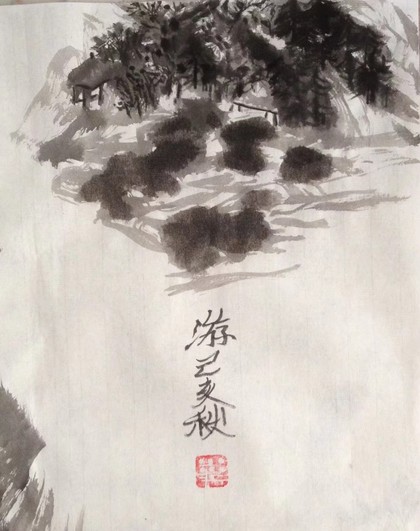 游己亥秋